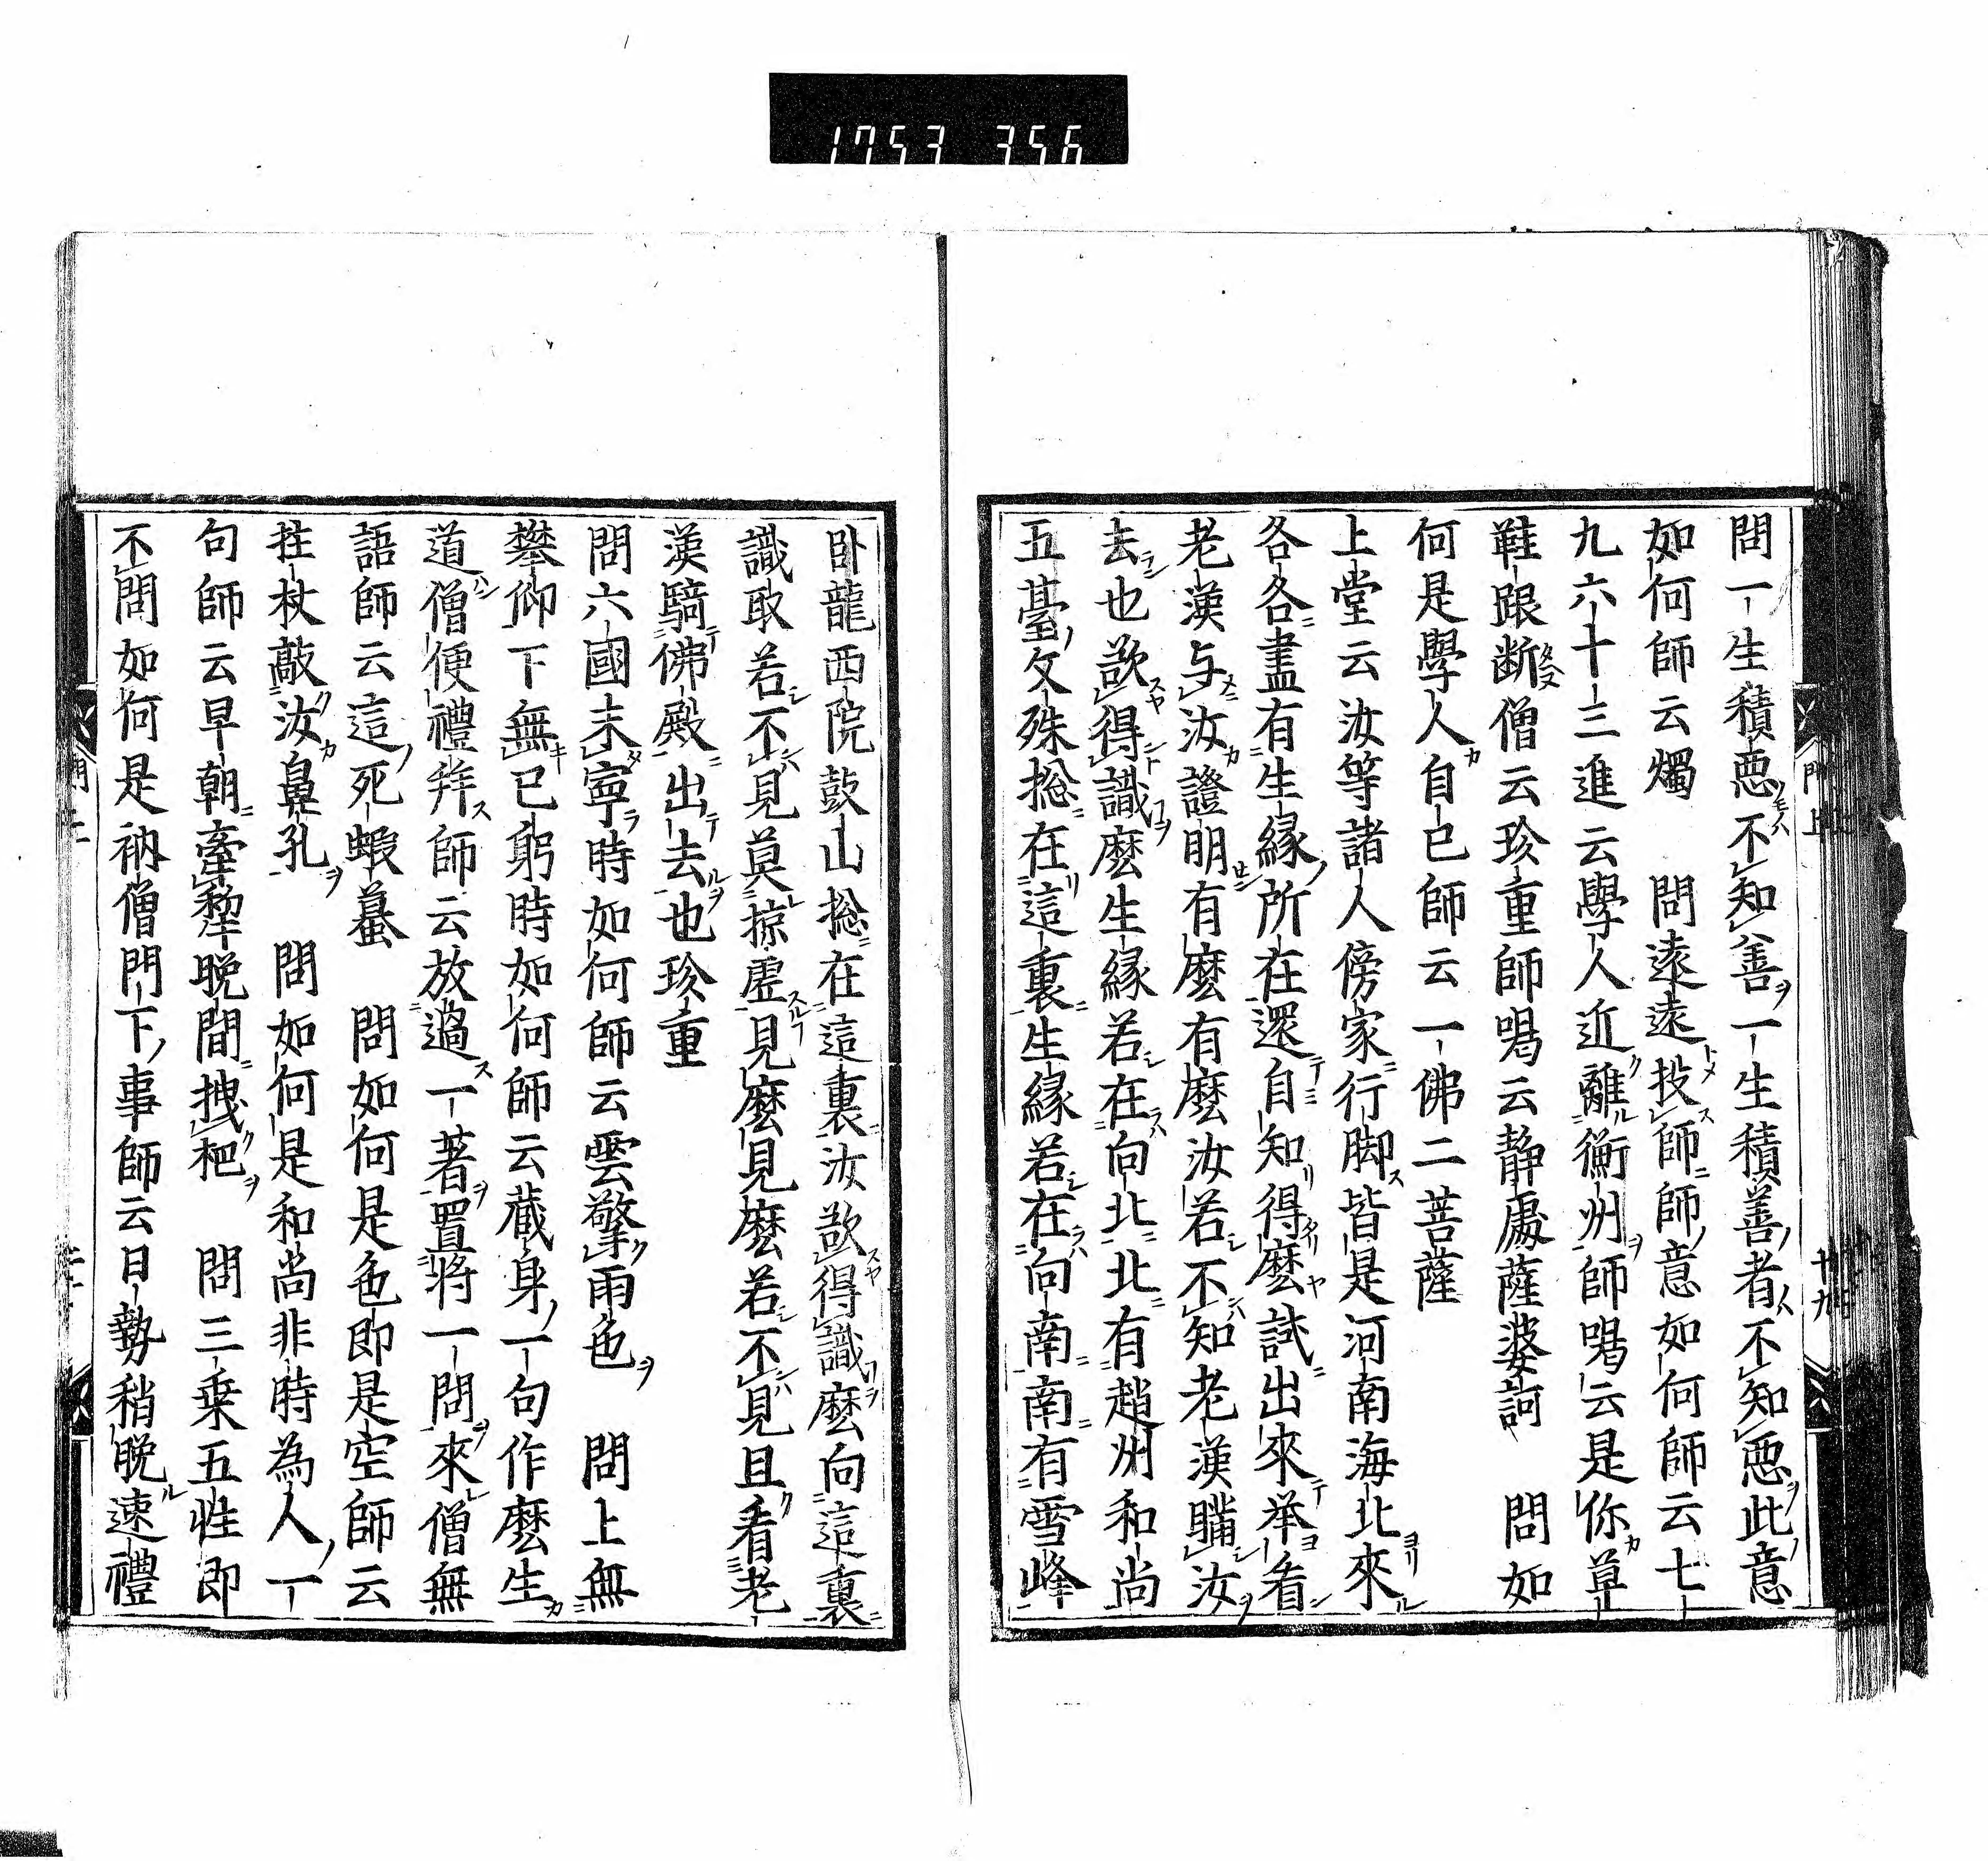 1753 356
問一生積惡不知善一生積善者不知惡此意
如何師云燭　問遠遠投師師意如何師云七
九六十三進云學人近離衡州師喝云是你草
鞋跟断僧云珍重師喝云静處薩婆訶　問如
何是學人自已師云一佛二菩薩
上堂云汝等諸人傍家行脚皆是河南海北來
各各盡有生緣所在還自知得麼試出來举看
老漢与汝證明有麼有麼汝若不知老漢瞞汝
去也欲得識麼生緣若在向北北有趙州和尚
五臺文殊揔在這裏生緣若在向南南有雪峰
臥龍西院鼓山揔在這裏汝欲得識麼向這裏
識取若不見莫掠虛見麼見麼若不見且看老
漢騎佛殿出去也珍重
問六國未寧時如何師云雲擎雨色　問上無
攀仰下無已躬時如何師云藏身一句作麼生
道僧便禮拜師云放過一著置將一問來僧無
語師云這死蝦蟇　問如何是色即是空師云
拄杖敲汝鼻孔　問如何是和尚非時為人一
句師云早朝牽犂晚間拽杷　問三乗五性即
不問如何是衲僧門下事師云日勢稍晚速禮
門上
十九